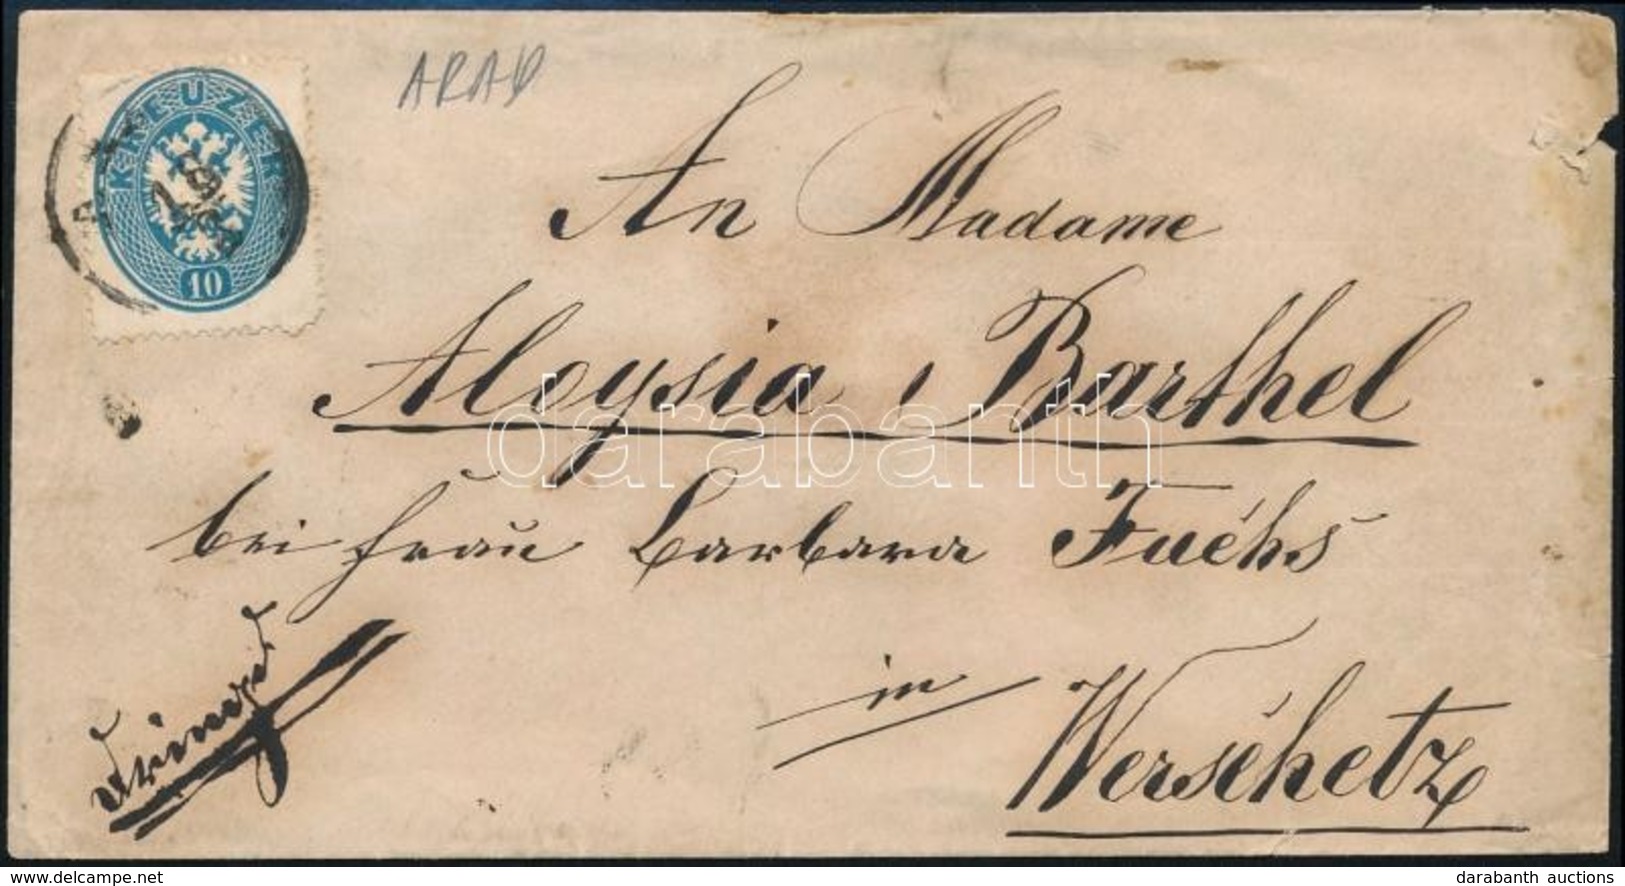 ARAD
10 KREUZER
An Madame
Aloysia Barthel
bei Frau Barbara Fuchs
in
Werschetz
darabanth
www.delcampe.net
darabanth auctions